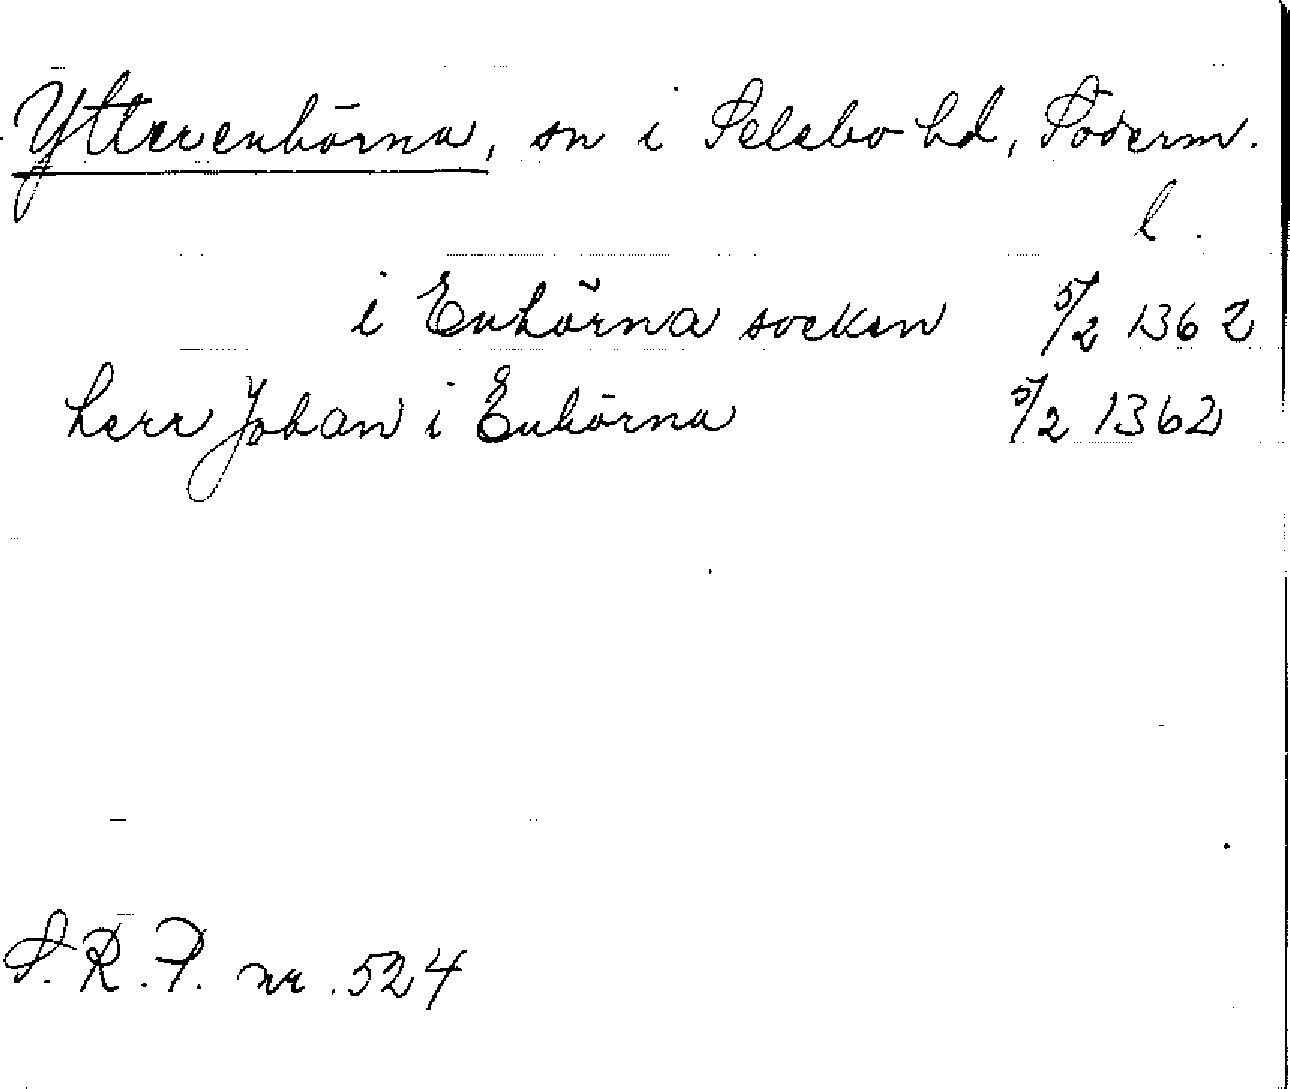 Ytterenhörna, sn i Selebo hd, Söderm.
l.
i Enhörna socken 5/2 1362
herr Johan i Enhörna 5/2 1362
S.R.P. nr. 524